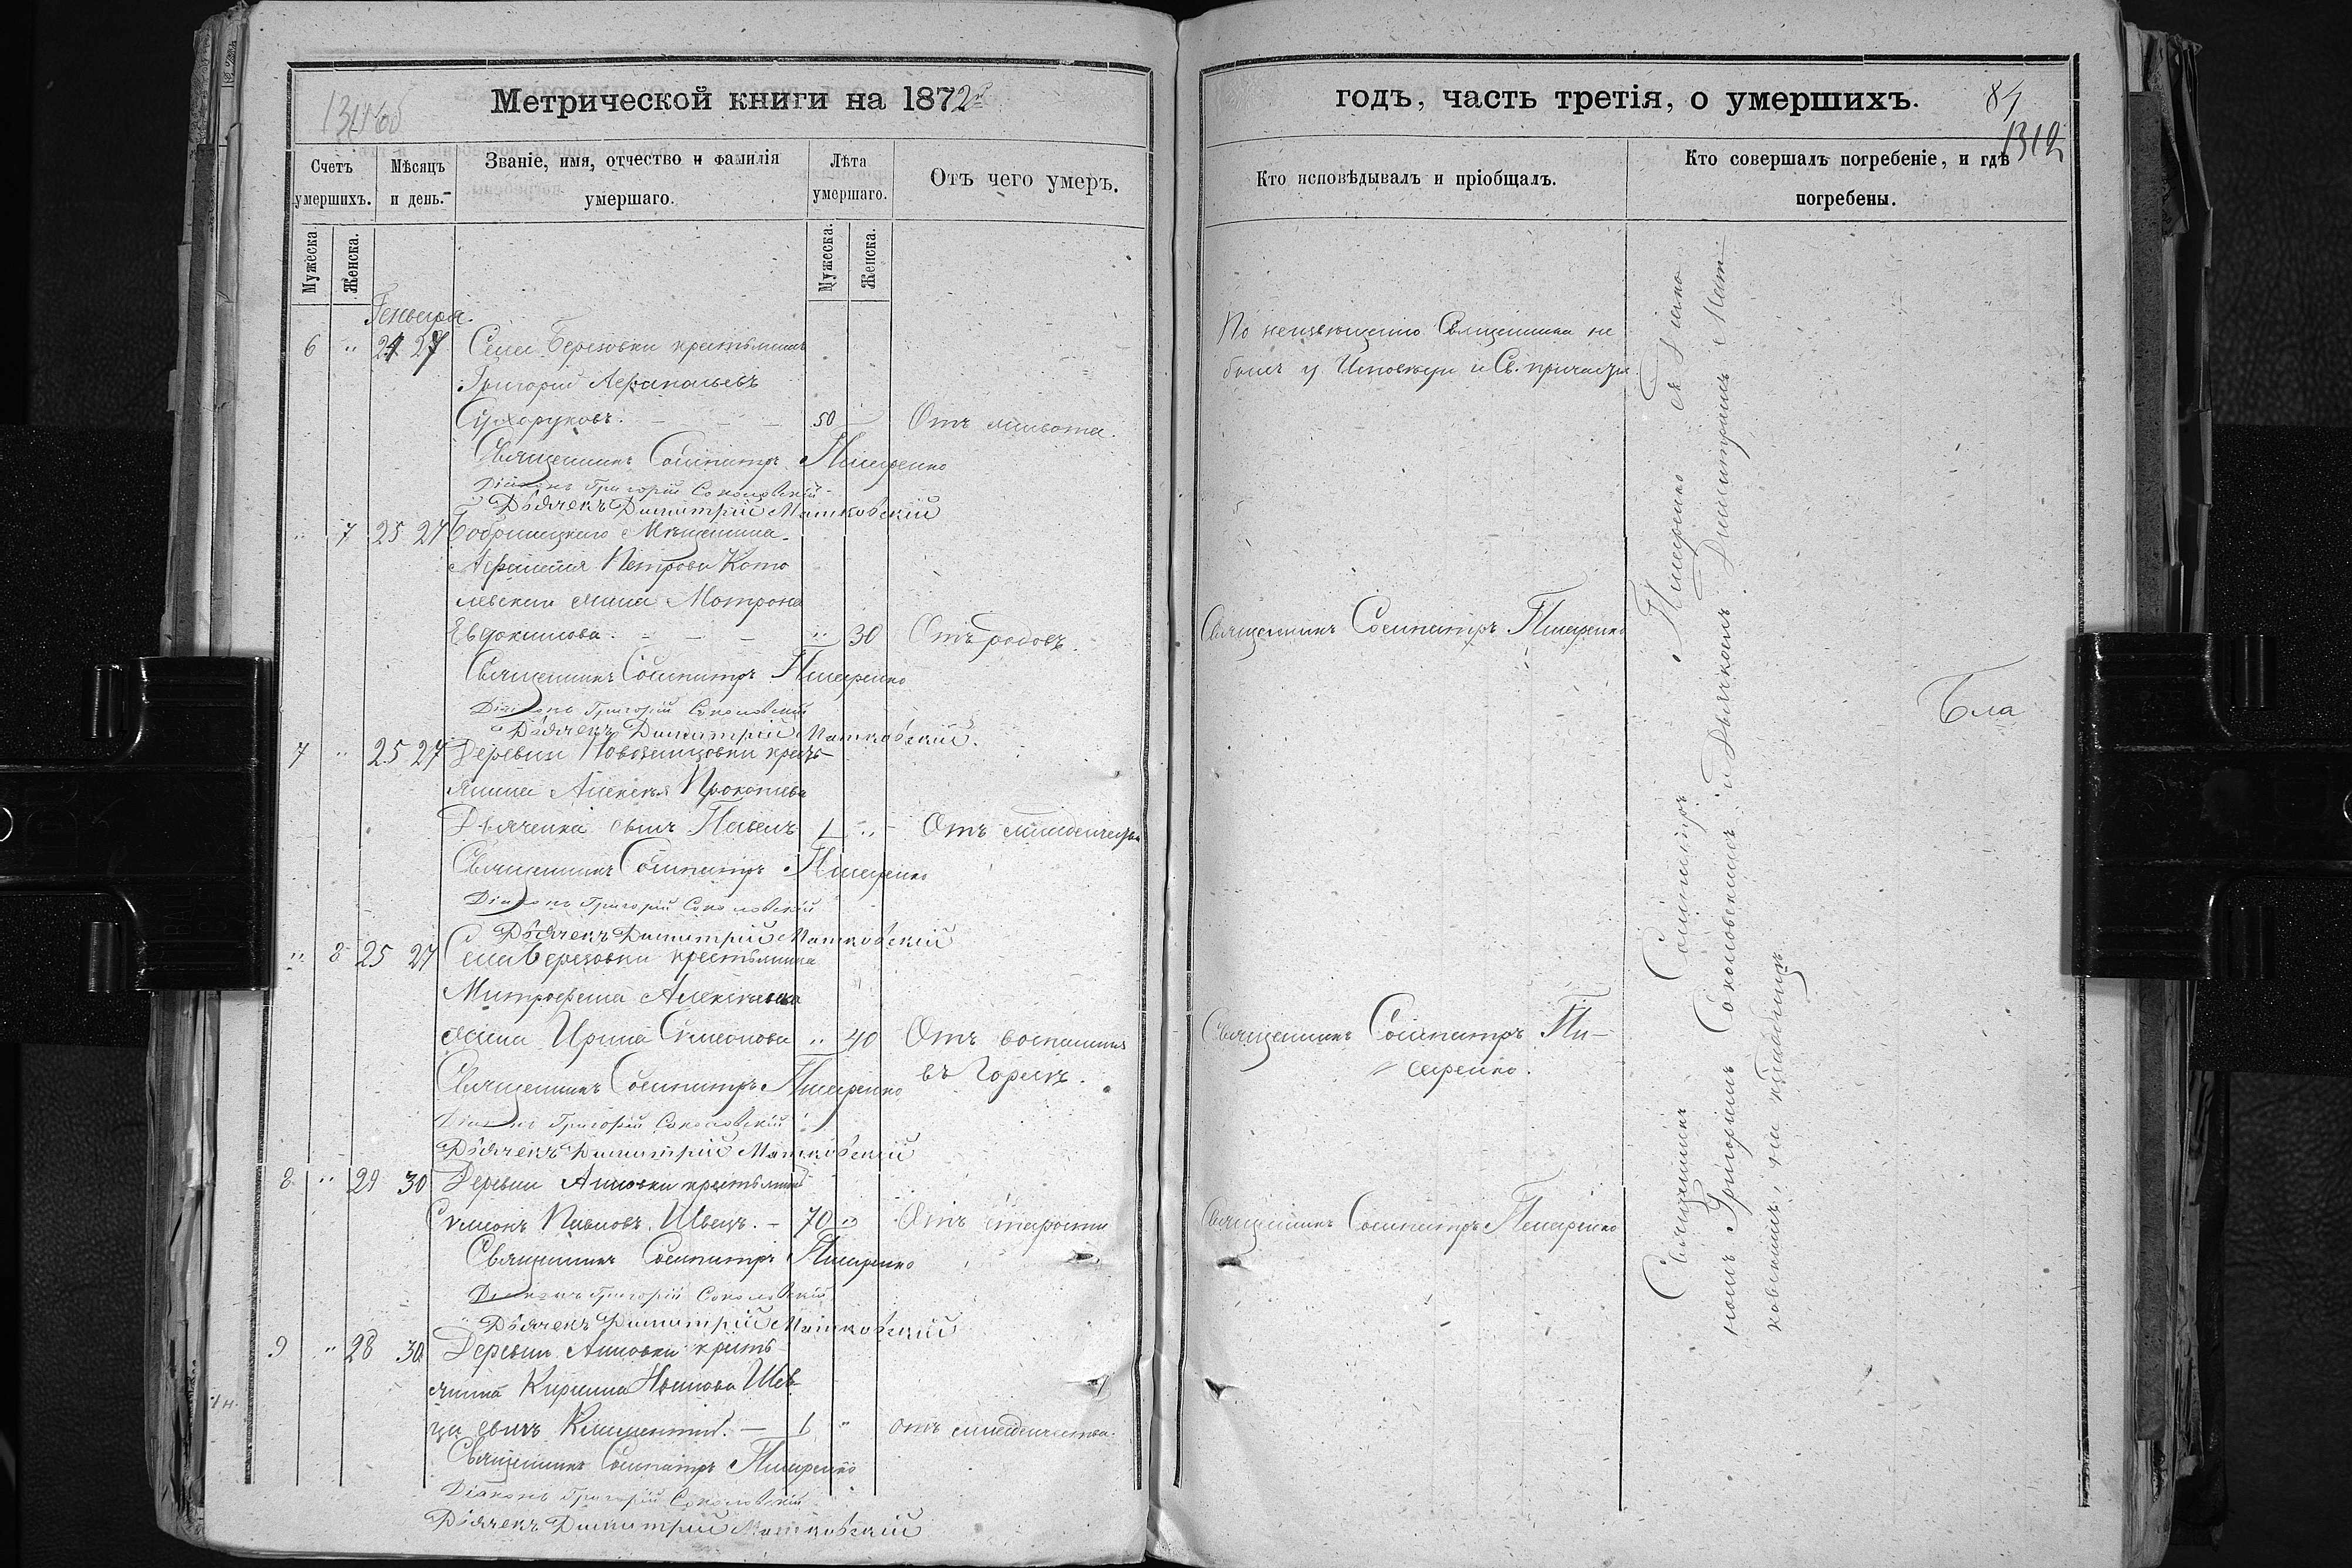 Метрической книги на 1872й
Счетъ умершихъ.
Мѣсяцъ и день.
Званіе, имя, отчество и фамилія умершаго.
Лѣта умершаго.
Отъ чего умеръ.
Мужеска.
Женска.
Мужеска.
Женска.
Генваря.
6 " 24 27 Села Березовки крестьянинъ
Григорій Аѳанасьевъ
Сухоруковъ. 50 Отъ живота.
Священникъ Сосипатръ Писаренко
Діаконъ Григорій Соколовскій
Дьячекъ Димитрій Матковскій
" 7 25 27 Бобринецкаго Мѣщанина
Аѳанасія Петрова Кото
левскаго жена Матрона
Евдокимова. " 30 Отъ родовъ.
Священникъ Сосипатръ Писаренко
Діаконъ Григорій Соколовскій
Дьячекъ Димитрій Матковскій.
7 " 25 27 Деревни крестъ-
янина Алексѣя Прокопіева
Дьяченка сынъ Павелъ 1 " Отъ младенчества
Священникъ Сосипатръ Писаренко
Діаконъ Григорій Соколовскій
Дьячекъ Димитрій Матковскій
" 8 25 27 Села Березовки крестьянина
Митрофана
жена Ирина Симеонова " 40 Отъ воспаленія
въ горлѣ.
Священникъ Сосипатръ Писаренко
Діаконъ Григорій Соколовскій
Дьячекъ Димитрій Матковскій
8 " 29 30 Деревни Анновки крестьянинъ
Симеонъ Павловъ Швецъ. 70 " Отъ старости
Священникъ Сосипатръ Писаренко
Діаконъ Григорій Соколовскій
Дьячекъ Димитрій Матковскій
9 " 28 30 Деревни Анновки кресть
янина Кирилла Иванова Шев
ца сынъ Климентій. 1 " отъ младенчества.
Священникъ Сосипатръ Писаренко
Діаконъ Григорій Соколовскій
Дьячекъ Димитрій Матковскій
годъ, часть третія, о умершихъ.
84
1312
Кто исповѣдывалъ и пріобщалъ.
Кто совершалъ погребеніе, и гдѣ погребены.
По неизвѣщенію Священника не
былъ у Исповѣди и Св. причастія.
Священникъ Сосипатръ Писаренко
Священникъ Сосипатръ Пи-
саренко.
Священникъ Сосипатръ Писаренко
Священникъ Сосипатръ Писаренко съ Діако
номъ Григоріемъ Соколовскимъ и Дьячкомъ Димитріемъ Мат-
ковскимъ, на кладбищѣ
Бла